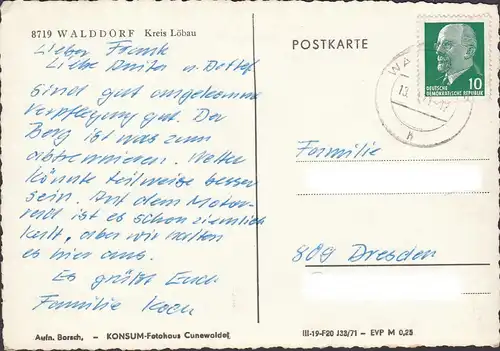 8719 WALDDORF Kreis Löbau
Lieber Frank
Liebe Anita u. Detlef
Sind gut angekommen
Verpflegung gut. Der
Berg ist was zum
abtrennen. Wetter
könnte teilweise besser
sein. Auf dem Motor-
rad ist es schon ziemlich
kalt, aber wir halten
es hier aus.
Es grüßt Euch
Familie Koch
Aufn. Borsch, – KONSUM-Fotohaus Cunewalde
POSTKARTE
WA
h
10
DEUTSCHE
DEMOKRATISCHE REPUBLIK
Familie
809 Dresden
III-19-F20 J33/71 – EVP M 0,25